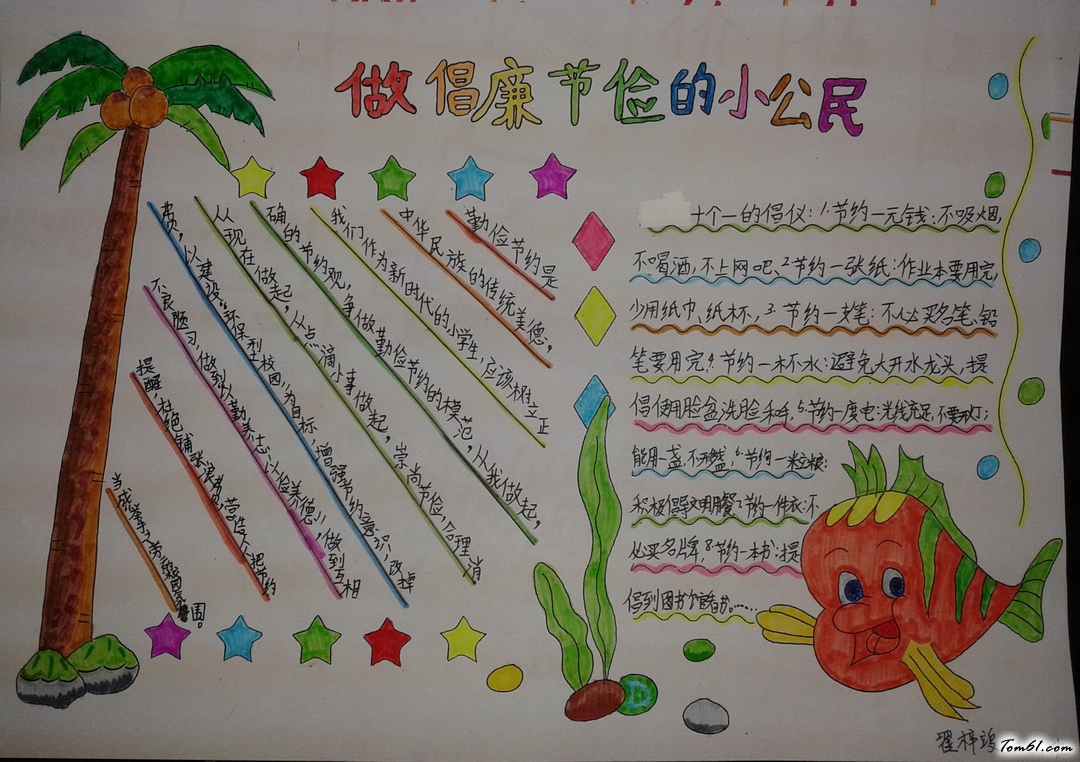 做倡廉节俭的小公民
勤俭节约是
中华民族的传统美德,
我们作为新时代的小学生,应该树立正
确的节约观,争做勤俭节约的模范,从我做起,
从现在做起,从点滴小事做起,崇尚节俭,合理消
费,以建设“环保型校园”为目标,增强节约意识,改掉
不良陋习,做到以勤养志,以俭养德”,做到互相
提醒,杜绝铺张浪费,营造个把节约
当成举手之劳氛围。
十个一的倡仪:1.节约一元钱:不吸烟,
不喝酒,不上网吧、2.节约一张纸:作业本要用完,
少用纸巾、纸杯,3.节约一支笔:不必买名笔、铅
笔要用完4.节约一木不水:避免大开水龙头,提
倡使用脸盆洗脸和手,5.节约一度电:光线充足,不要开灯;
能用一盏,不开盏6.节约一粒粮:
积极倡导文明用餐7.节约一件衣:不
必买名牌,8.节约一本书:提
倡到图书馆看书……
翟梓
Tom61.com